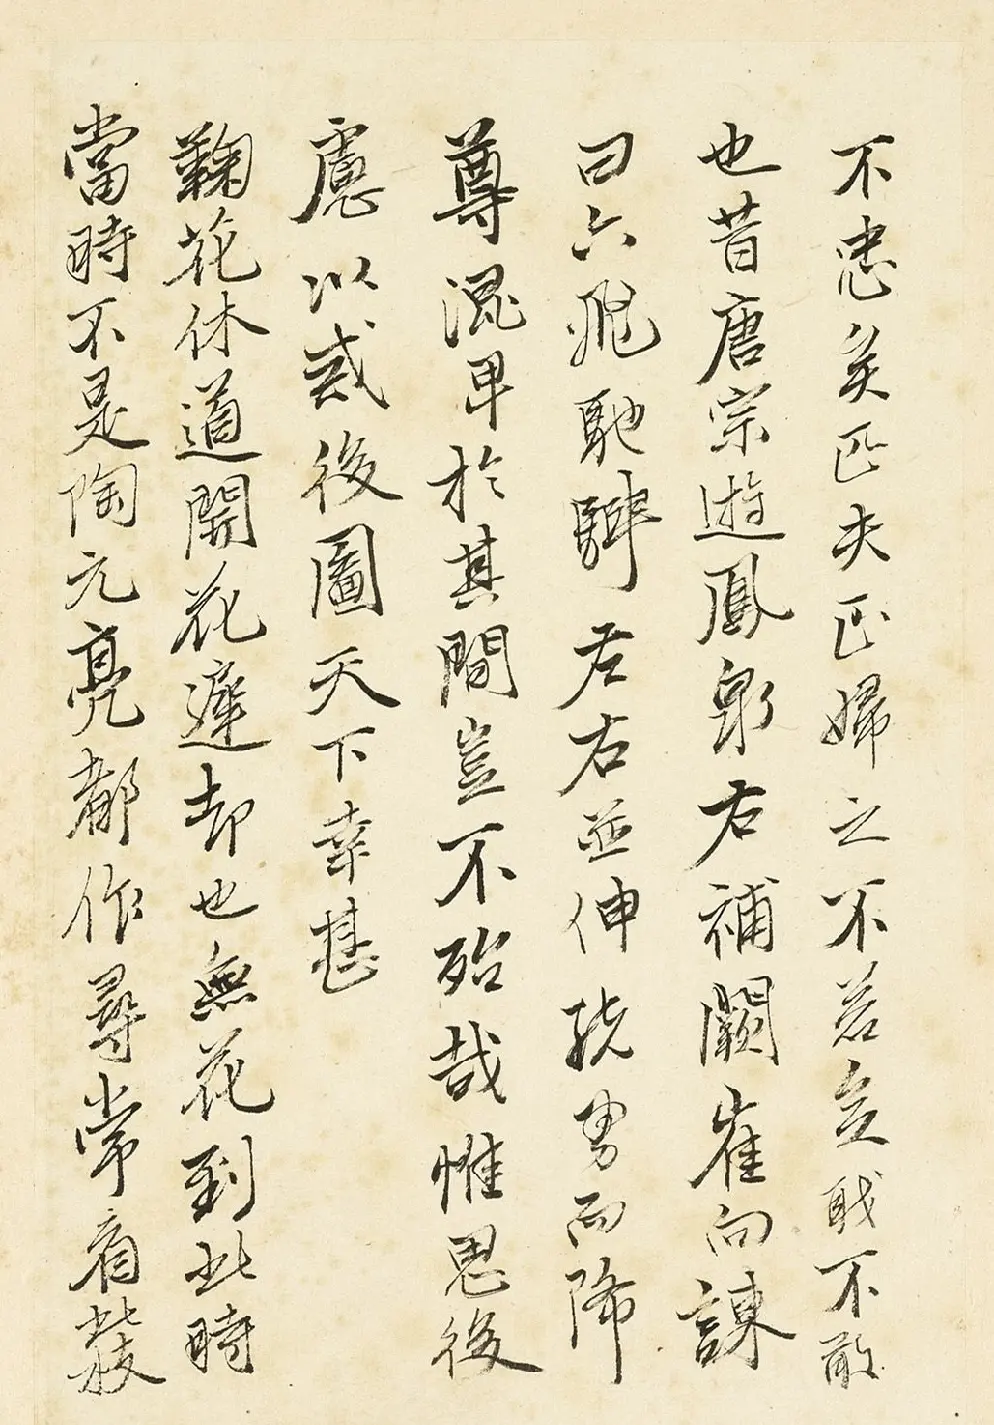 不忠矣匹夫匹婦之不若立職不敢
也昔唐宗遊鳳泉右補闕崔向諫
曰六飛馳騁左右並伸而降
尊混卑於其間豈不殆哉惟思後
慮以後圖天下幸甚
鞠花休道開花遲却也無花到此時
當時不是陶元亮都作尋常看